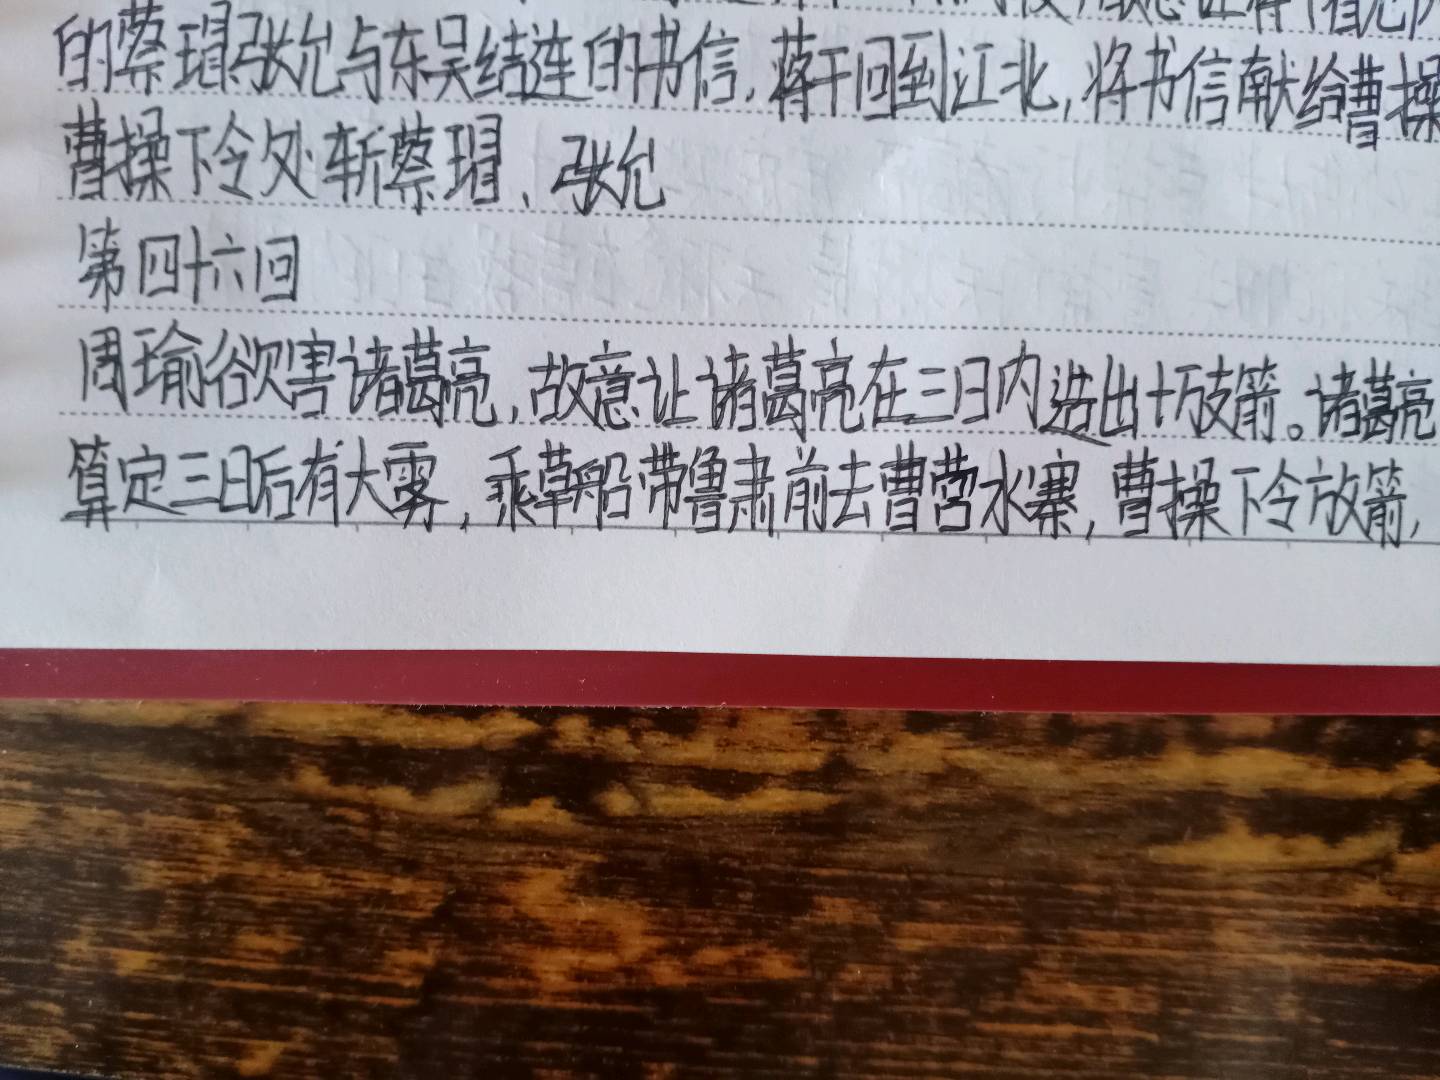 的蔡瑁张允与东吴结连的书信,蒋干回到江北,将书信献给曹操
曹操下令处斩蔡瑁、张允
第四十六回
周瑜欲害诸葛亮,故意让诸葛亮在三日内造出十万支箭。诸葛亮
算定三日后有大雾,乘草船带鲁肃前去曹营水寨,曹操下令放箭,